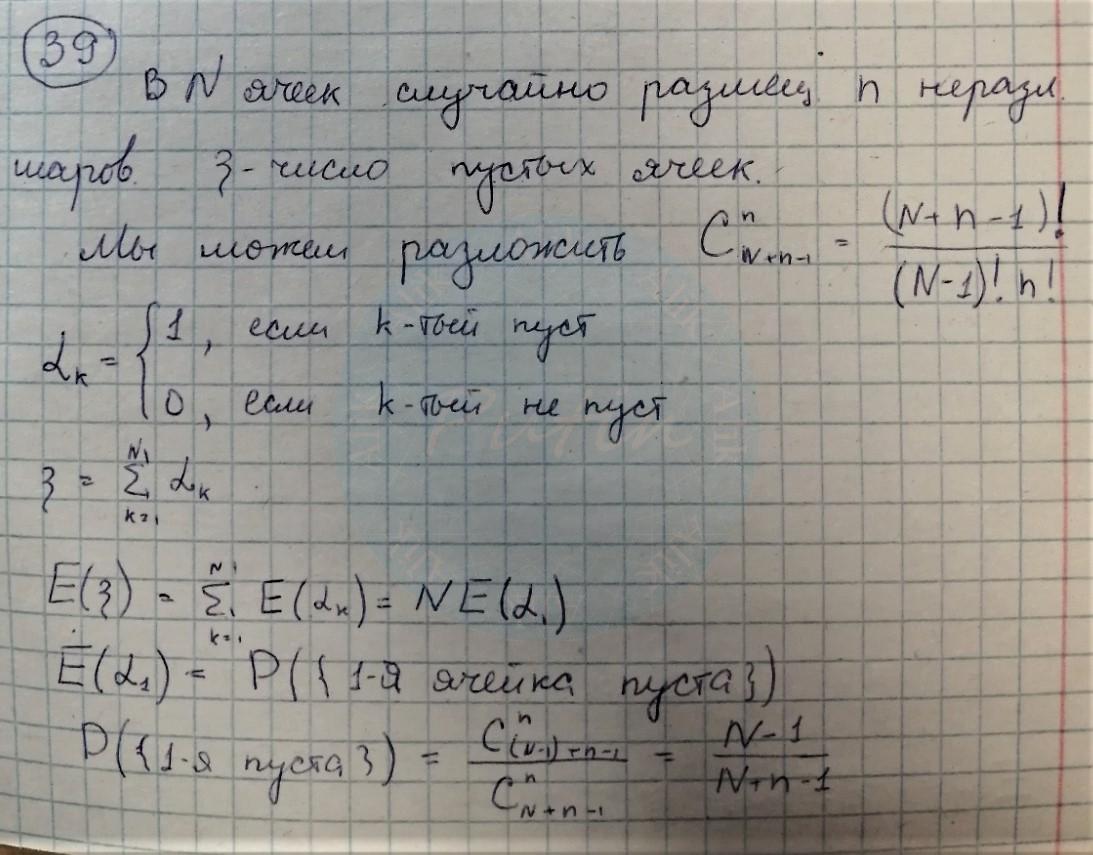 39
В N ячеек случайно размещ n неразл.
шаров. ξ - число пустых ячеек.
Мы можем разложить C_{N+n-1}^{n} = \frac{(N+n-1)!}{(N-1)! n!}
α_k = { 1, если k-тый пуст
0, если k-тый не пуст
ξ = \sum_{k=1}^{N} α_k
E(ξ) = \sum_{k=1}^{N} E(α_k) = N E(α_1)
E(α_1) = P({1-я ячейка пуста})
P({1-я пуста}) = \frac{C_{(N-1)+n-1}^{n}}{C_{N+n-1}^{n}} = \frac{N-1}{N+n-1}